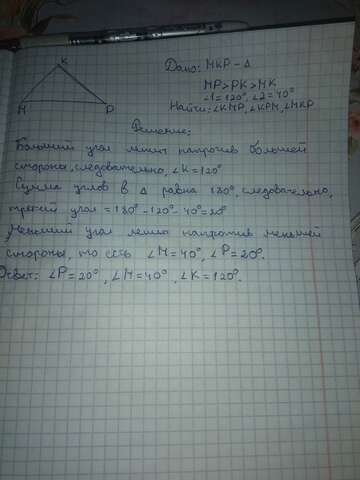 K
M
P
Дано: MKP - Δ
MP>PK>MK
∠1=120°, ∠2=40°
Найти: ∠KMP, ∠KPM, ∠MKP
Решение:
Больший угол лежит напротив большей
стороны, следовательно, ∠K=120°
Сумма углов в Δ равна 180°, следовательно,
третий угол =180°-120°-40°=20°
Меньший угол лежит напротив меньшей
стороны, то есть ∠M=40°, ∠P=20°.
Ответ: ∠P=20°, ∠M=40°, ∠K=120°.